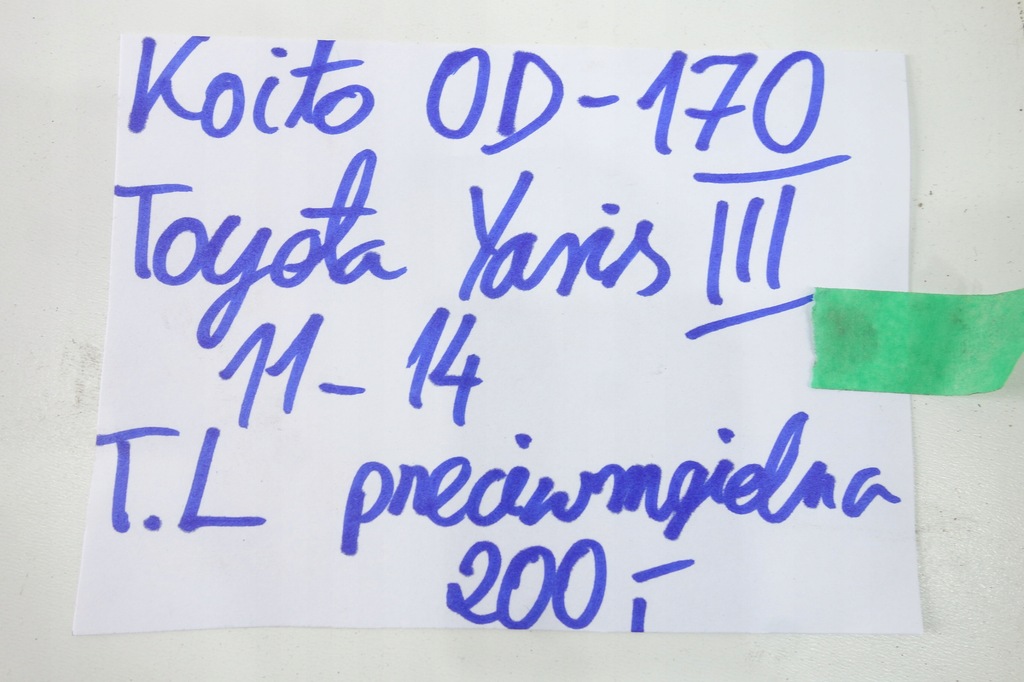 Koito OD-170
Toyota Yaris III
11-14
T.L preciwmgielna
200,-